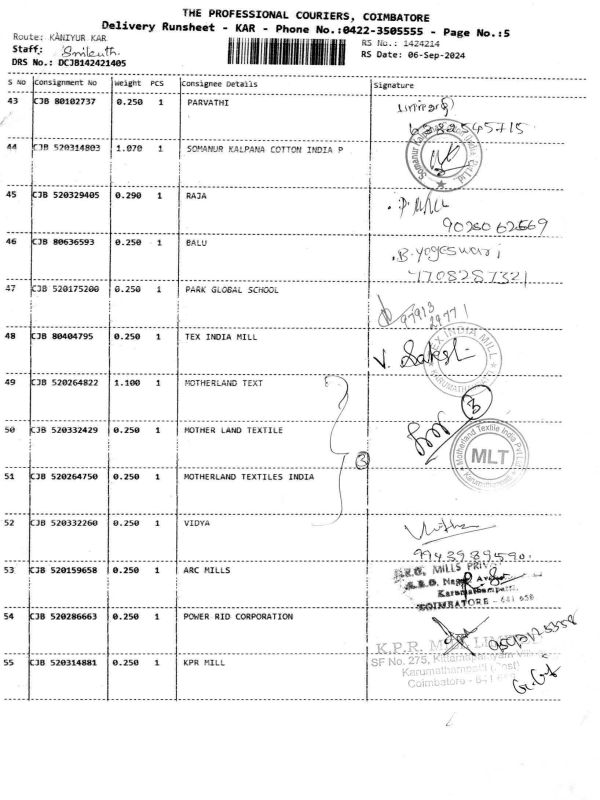 THE PROFESSIONAL COURIERS, COIMBATORE
Delivery Runsheet - KAR - Phone No.:0422-3505555 - Page No.:5
Route: KANIYUR KAR
RS No.: 1424214
Staff:
RS Date: 06-Sep-2024
DRS No.: DCJB142421405
S No Consignment No Weight PCS Consignee Details Signature
43 CJB 80102737 0.250 1 PARVATHI
6382545715
44 CJB 520314803 1.070 1 SOMANUR KALPANA COTTON INDIA P
45 CJB 520329405 0.290 1 RAJA
9025062569
46 CJB 80636593 0.250 1 BALU
B. yogeswari
4708287321
47 CJB 520175200 0.250 1 PARK GLOBAL SCHOOL
97913
29771
48 CJB 80404795 0.250 1 TEX INDIA MILL
TEX INDIA MILL
KARUMATHAM
V. Sakthi
49 CJB 520264822 1.100 1 MOTHERLAND TEXT
3
50 CJB 520332429 0.250 1 MOTHER LAND TEXTILE
3
Motherland Textile India Pvt Ltd
MLT
Karumathampatti
51 CJB 520264750 0.250 1 MOTHERLAND TEXTILES INDIA
52 CJB 520332260 0.250 1 VIDYA
9943989590
53 CJB 520159658 0.250 1 ARC MILLS
MILLS PRIV
Karumathampatti
COIMBATORE - 641 658
54 CJB 520286663 0.250 1 POWER RID CORPORATION
55 CJB 520314881 0.250 1 KPR MILL
K.P.R. MILL LIMI
SF No. 275,
Karumathampatti (Post)
Coimbatore - 641